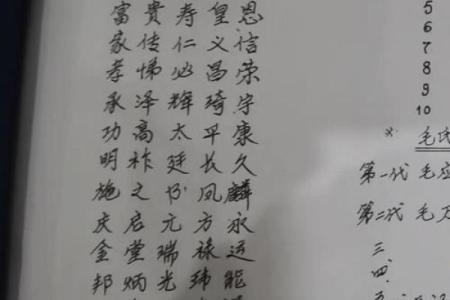 富贵寿皇恩
家传仁义信
孝悌必昌荣
承泽辉琦宇
功高太平康
明祚廷长久
施之书凤麟
庆启元方永
金堂瑞禄运
邦炳光玮能
5
6
7
8
9
10
* 毛氏
第一代 毛应
第二代 毛
三
四